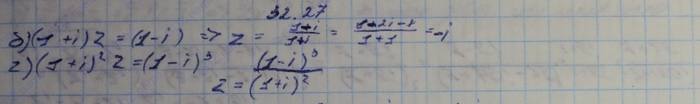 32.27
б) (1+i)z = (1-i) => z = \frac{1+i}{1+i} = \frac{1+2i-1}{1+1} = -i
г) (1+i)² z = (1-i)³
z = \frac{(1-i)³}{(1+i)²}